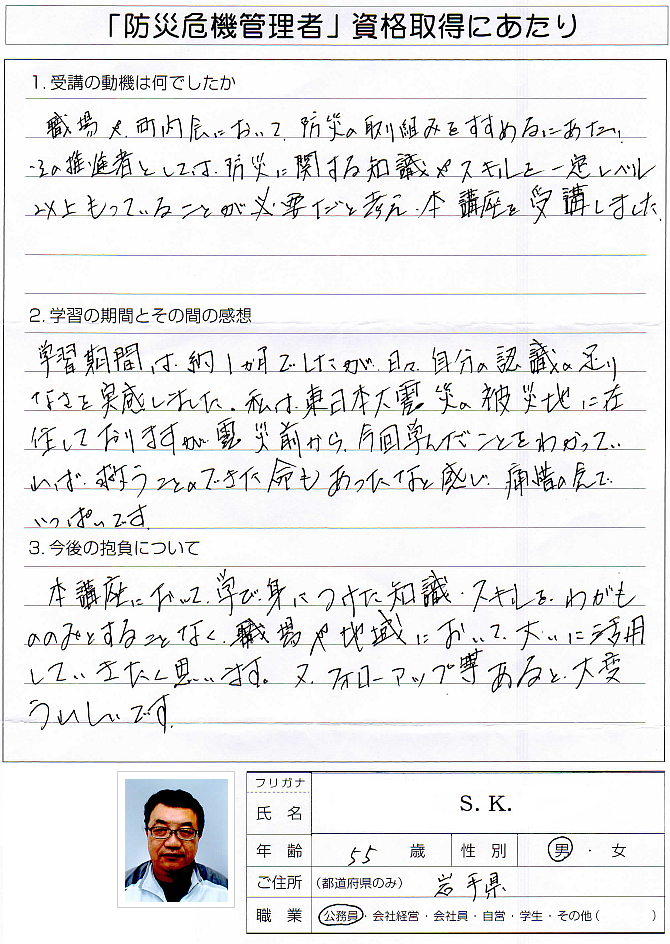 「防災危機管理者」資格取得にあたり
1. 受講の動機は何でしたか
職場や町内会において、防災の取り組みをすすめるにあたり
その推進者としては、防災に関する知識やスキルを一定レベル
以上もっていることが必要だと考え、本講座を受講しました。
2. 学習の期間とその間の感想
学習期間は、約1か月でしたが、日々、自分の認識の足り
なさを実感しました。私は、東日本大震災の被災地に在
住しておりますが、震災前から、今回学んだことをわかってい
れば、救うことのできた命もあったなと感じ、痛惜の念で
いっぱいです。
3. 今後の抱負について
本講座において、学び、身につけた知識・スキルを、わがも
ののみとすることなく、職場や地域において、大いに活用
していきたく思います。又、フォローアップ等あると、大変
うれしいです。
フリガナ
氏 名 S. K.
年 齢 55 歳 性 別 男 ・ 女
ご住所 (都道府県のみ) 岩手県
職 業 公務員・会社経営・会社員・自営・学生・その他( )